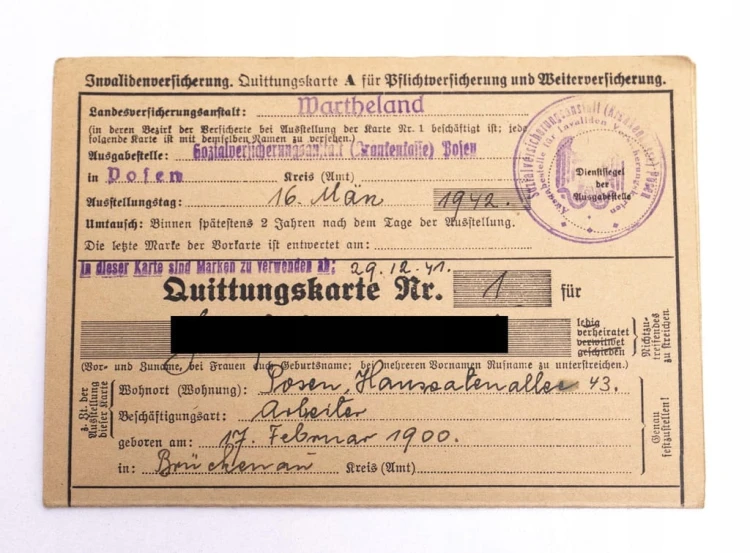 Invalidenversicherung. Quittungskarte A für Pflichtversicherung und Weiterversicherung.
Landesversicherungsanstalt: Wartheland
(in deren Bezirk der Versicherte bei Ausstellung der Karte Nr. 1 beschäftigt ist; jede
folgende Karte ist mit demselben Namen zu versehen.)
Ausgabestelle: Sozialversicherungsanstalt (Krankenkasse) Posen
in Posen Kreis (Amt)
Ausstellungstag: 16. März 1942.
Umtausch: Binnen spätestens 2 Jahren nach dem Tage der Ausstellung.
Die letzte Marke der Vorkarte ist entwertet am:
Dienstsiegel
der
Ausgabestelle
In dieser Karte sind Marken zu verwenden ab: 29.12.41.
Quittungskarte Nr. 1 für
ledig
verheiratet
verwitwet
geschieden
Nichtzu-
treffendes
zu streichen.
(Vor- und Zuname, bei Frauen auch Geburtsname; bei mehreren Vornamen Rufname zu unterstreichen.)
z. Zt. der
Ausstellung
dieser Karte
Wohnort (Wohnung): Posen, Hanseatenallee 43.
Beschäftigungsart: Arbeiter
geboren am: 17. Februar 1900.
in: Brückenau Kreis (Amt)
Genau
festzustellen!